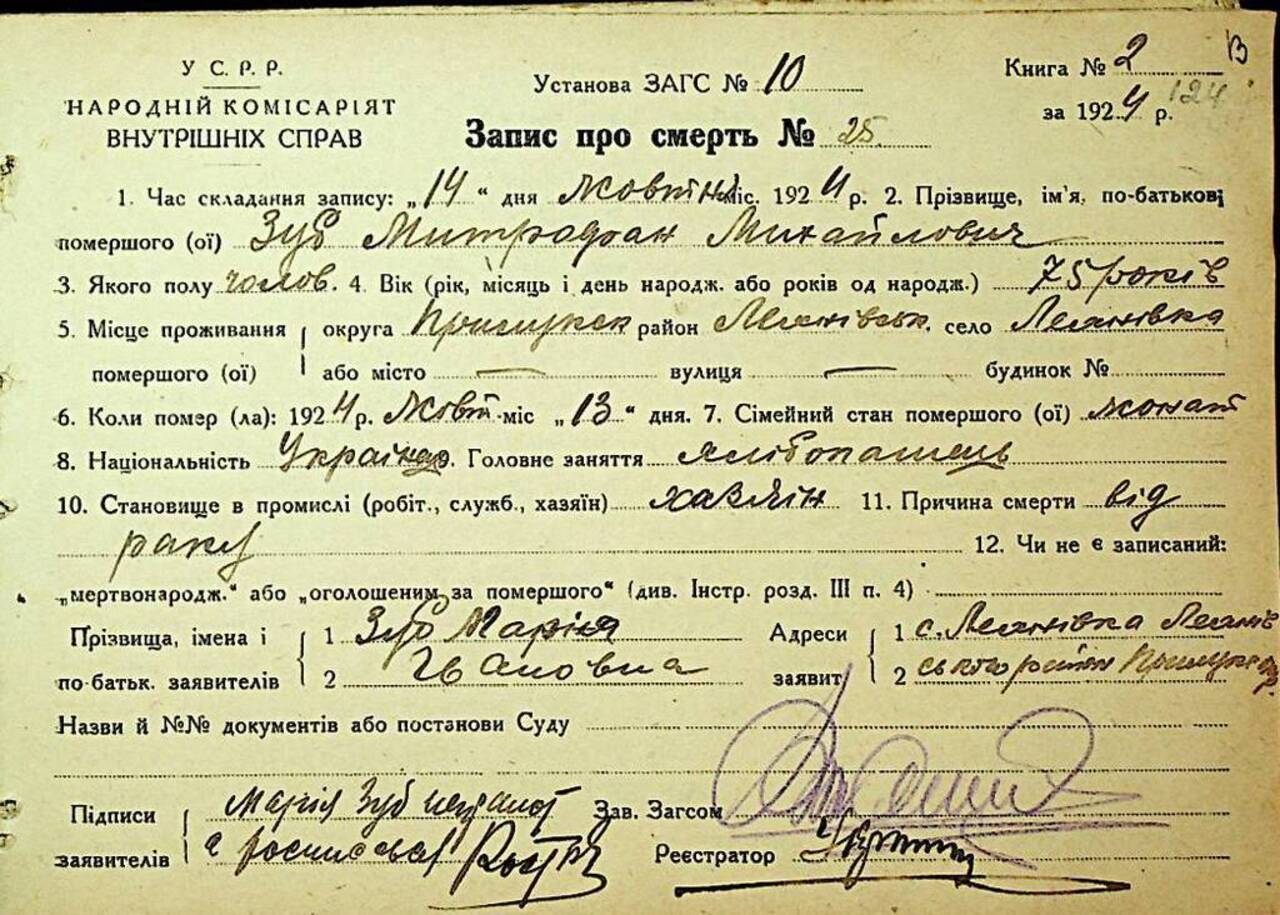 У С. Р. Р.
НАРОДНІЙ КОМІСАРІЯТ
ВНУТРІШНІХ СПРАВ
Установа ЗАГС № 10
Запис про смерть № 25.
Книга № 2
за 1924 р.
124
1. Час складання запису: „14“ дня жовтня міс. 1924 р. 2. Прізвище, ім'я, по-батькові
помершого (ої) Зуб Митрофан Михайлович
3. Якого полу чолов. 4. Вік (рік, місяць і день народж. або років од народж.) 75 років
5. Місце проживання округа Прилуцьк район село
помершого (ої) або місто — вулиця — будинок №
6. Коли помер (ла): 1924 р. Жовт міс „13“ дня. 7. Сімейний стан помершого (ої) жонат
8. Національність Українець. Головне заняття хліборобець
10. Становище в промислі (робіт., служб., хазяїн) хазяїн 11. Причина смерти від
раку 12. Чи не є записаний:
„мертвонародж.“ або „оголошеним за помершого“ (див. Інстр. розд. III п. 4)
Прізвища, імена і 1 Зуб Марія Адреси 1 с.
по-батьк. заявителів 2 Івановна заявит. 2 ського район
Назви й №№ документів або постанови Суду
Підписи Марія Зуб Зав. Загсом
заявителів а росписался Реєстратор